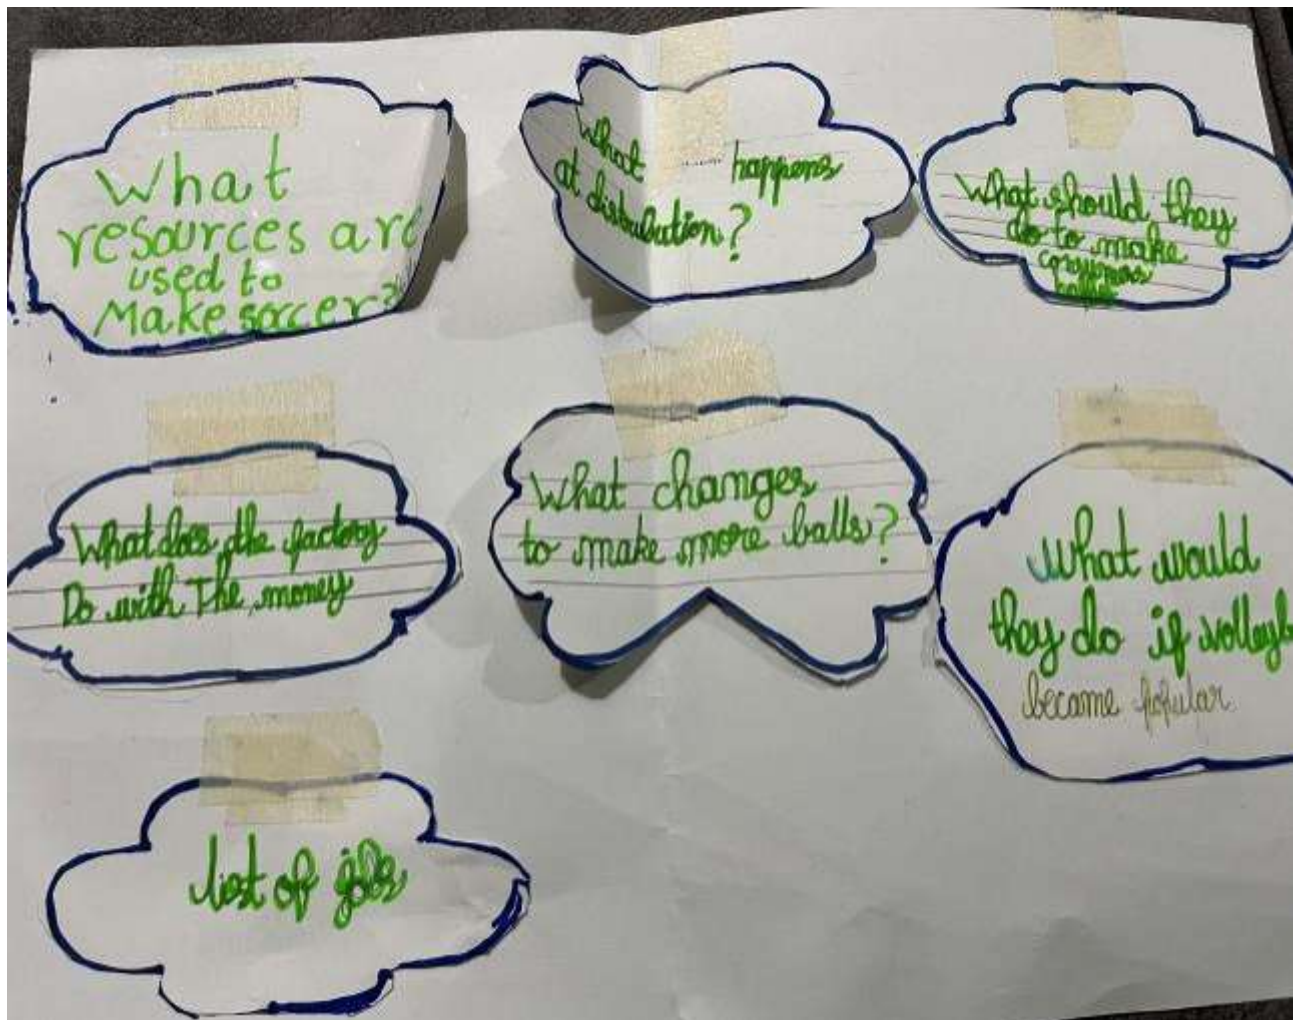 What
resources are
used to
Make sorcer?
What happens
at distribution?
What should they
do to make
What does the factory
Do with The money
What changes
to make more balls?
What would
they do if volleyb
became popular
list of jobs